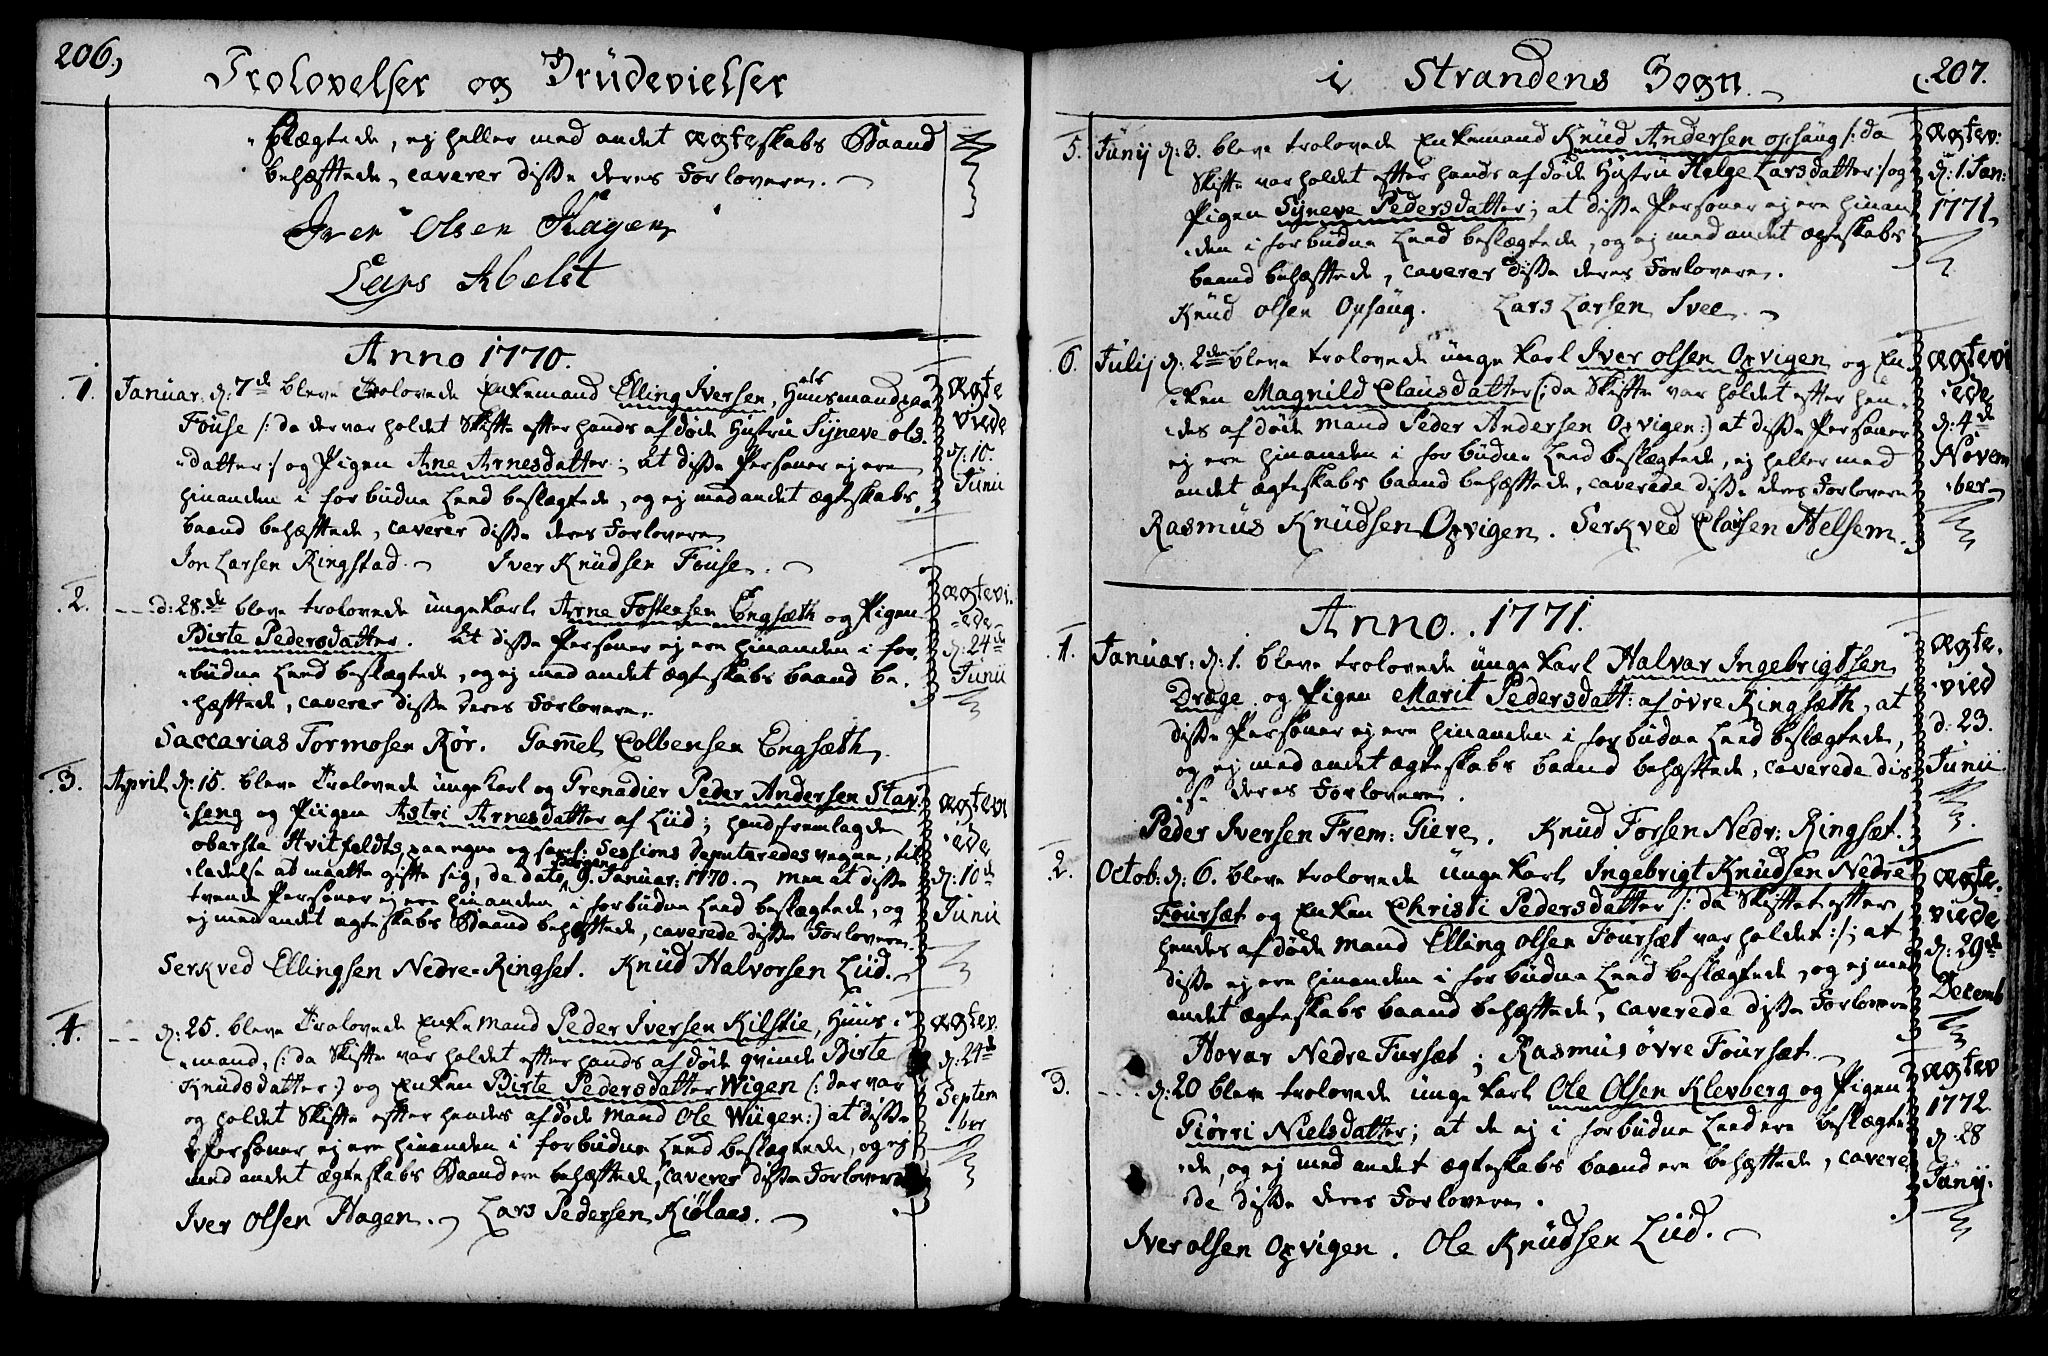 206.)
Trolovelser og Brüdevielser
beslægtede, ej heller med andet ægteskabs Baand
behæftede, caverer disse deres Forlovere.
Iver Olsen Hagen
Lars Abelset
Anno 1770.
1. Januar: d: 7de bleve Trolovede Enkemand Elling Iversen, Huusmand paa
Fouse /: da der var holdet Skifte efter hands afdøde Hustrü Syneve Ols-
datter :/ og Pigen Ane Arnesdatter; at disse Personer ej ere
hinanden i forbudne Leed beslægtede, og ej med andet ægteskabs
baand behæftede, caverer disse deres Forlovere
Jon Larsen Ringstad. Iver Knüdsen Fouse.
ægte
viede
d: 10.
Junii
2. d: 28de bleve trolovede ünge karl Arne Tostensen Engsæth og Pigen
Birte Pedersdatter. At disse Personer ej ere hinanden i for-
büdne Leed beslægtede, og ej med andet ægteskabs baand be-
hæftede, caverer disse deres Forlovere.
Saccarias Tormosen Rør. Gam̄el Colbensen Engsæth.
ægtevi-
ede
d: 24de
Junii
3. April d: 15. bleve Trolovede ünge karl og Grenadier Peder Andersen Stav-
seng og Piigen Astri Arnesdatter af Liid; hands fremlagde
oberste Hvitfeldts paa egne og saml: Sessions deputeredes vegne, til-
ladelse at maatte gifte sig, de dato Bergen 9. Januar: 1770. men at disse
tvende Personer ej ere hinanden i forbudne Leed beslægtede, og
ej med andet ægteskabs Baand behæftede, caverede disse Forlovere
Serkved Ellingsen Nedre-Ringset. Knüd Halvorsen Liid.
ægtevi
ede
d: 10de
Junii
4. d: 25. bleve Trolovede Enkemand Peder Iversen Kilstie, Hüüs-
mand, (: da Skifte var holdet efter hands afdøde qvinde Birte
Knudsdatter :) og Enken Birte Pedersdatter Wigen (: der var
og holdet Skifte efter hendes afdøde Mand Ole Wiigen :) at disse
Personer ej ere hinanden i forbudne Leed beslægtede, og ej
med andet ægteskabs Baand ere behæftede, caverer disse Forlovere
Iver Olsen Hagen. Lars Pedersen Kiølaas.
ægtev:
d: 24de
Septem
ber
i Strandens Sogn
207.
5. Junij d: 3. bleve trolovede Enkemand Knüd Andersen Opsang /: da
Skifte var holdet efter hands afdøde Hüstrü Helge Larsdatter :/ og
Pigen Syneve Pedersdatter; at disse Personer ej ere hinan
den i forbudne Leed beslægtede, og ej med andet ægteskabs
baand behæftede, caverer disse deres Forlovere.
Knüd Olsen Opsang. Lars Larsen Svee.
ægtev:
d: 1. Jan:
1771.
6. Julij d: 2den bleve trolovede ünge karl Iver Olsen Opvigen og En
ken Magnild Clausdatter (: da Skifte var holdet efter hen-
des afdøde Mand Peder Andersen Opvigen :) at disse Personer
ej ere hinanden i forbudne Leed beslægtede, ej heller med
andet ægteskabs baand behæftede, caverede disse deres Forlovere
Rasmüs Knüdsen Opvigen. Serkved Clausen Helsem.
ægtevi
ede
d: 4de
Novem
ber
Anno. 1771.
1. Januar: d: 1. bleve trolovede ünge karl Halvar Ingebrigtsen
Dræge og Pigen Marit Pedersdatt: af øvre Ringsæth, at
disse Personer ej ere hinanden i forbudne Leed beslægtede,
og ej med andet ægteskabs baand behæftede, caverede dis
se deres Forlovere.
Peder Iversen Frem: Giere. Knüd Torsen Nedr: Ringsæt.
ægte-
vied
d: 23.
Junii
2. Octob: d: 6. bleve trolovede ünge karl Ingebrigt Knüdsen Nedre
Foursæt og Enken Christi Pedersdatter /: da Skiftet efter
hendes afdøde Mand Elling Olsen Foursæt var holdet :/; at
disse ej ere hinanden i forbudne Leed beslægtede, og ej med
andet ægteskabs baand behæftede, caverede disse Forlovere
Hovar Nedre Fursæt; Rasmus øvre Foursæt.
ægte-
viede
d: 29de
Decemb
3. d: 20 bleve trolovede ünge karl Ole Olsen Klevberg og Pigen
Giørri Nielsdatter; at de ej i forbudne Leed ere beslægte
de, og ej med andet ægteskabs baand ere behæftede, cavere
de disse deres Forlovere.
Iver Olsen Opvigen. Ole Knüdsen Liid.
ægtev
1772.
d. 28
Junij.